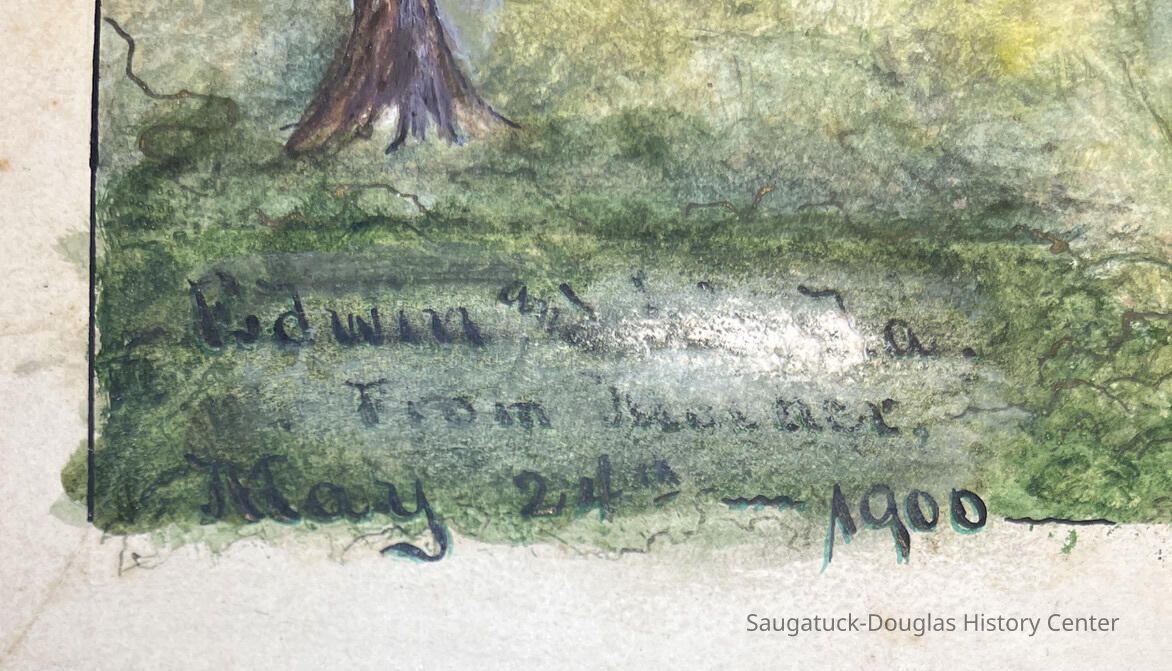 Edwin and
From
May 24th — 1900 —
Saugatuck-Douglas History Center